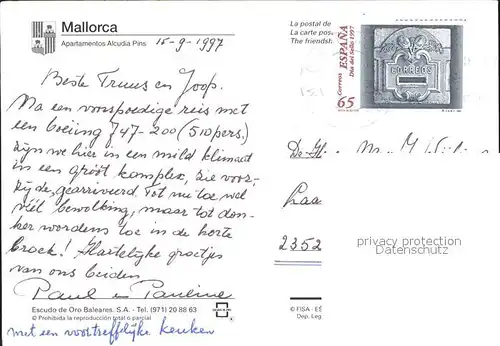 Mallorca
Apartamentos Alcudia Pins
15-9-1997
Beste Truus en Joop.
Na een voorspoedige reis met
een boeiing 747-200 (510 pers.)
zijn we hier in een mild klimaat
in een groot komplex, zie voor-
zijde, gearriveerd. Tot nu toe wel
véél bewolking, maar tot don-
ker wordens toe in de korte
broek! Hartelijke groetjes
van ons beiden
Paul en Pauline
Escudo de Oro Baleares. S.A. - Tel. (971) 20 88 63
© Prohibida la reproducción total o parcial
met een voortreffelijke keuken
La postal de
La carte pos
The friendsh
Correos ESPAÑA
Día del Sello 1997
65
CORREOS
De
Laa
2352
privacy protection
Datenschutz
© FISA - ES
Dep. Leg